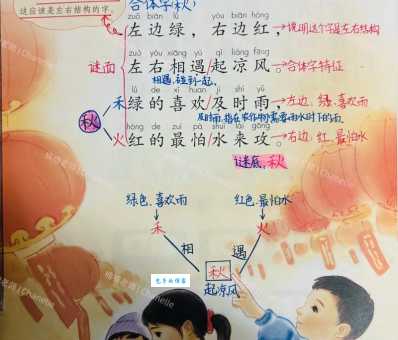 这应该是左右结构的字。
合体字(秋)
zuǒ biān lǜ yòu biān hóng
左边绿，右边红，→说明这个字是左右结构
zuǒ yòu xiāng yù qǐ liáng fēng
谜面 左右相遇/起凉风。→合体字特征
相遇,碰到一起。
lǜ de xǐ huān jí shí yǔ
禾 绿的喜欢/及时雨，→左边：绿、喜欢雨
秋
及时雨:指在农作物需要雨水时下的雨
hóng de zuì pà shuǐ lái gōng
火 红的最怕/水来攻。→右边：红、最怕水
谜底：秋
绿色、喜欢雨 红色、最怕水
禾 火
相 遇
秋
起凉风